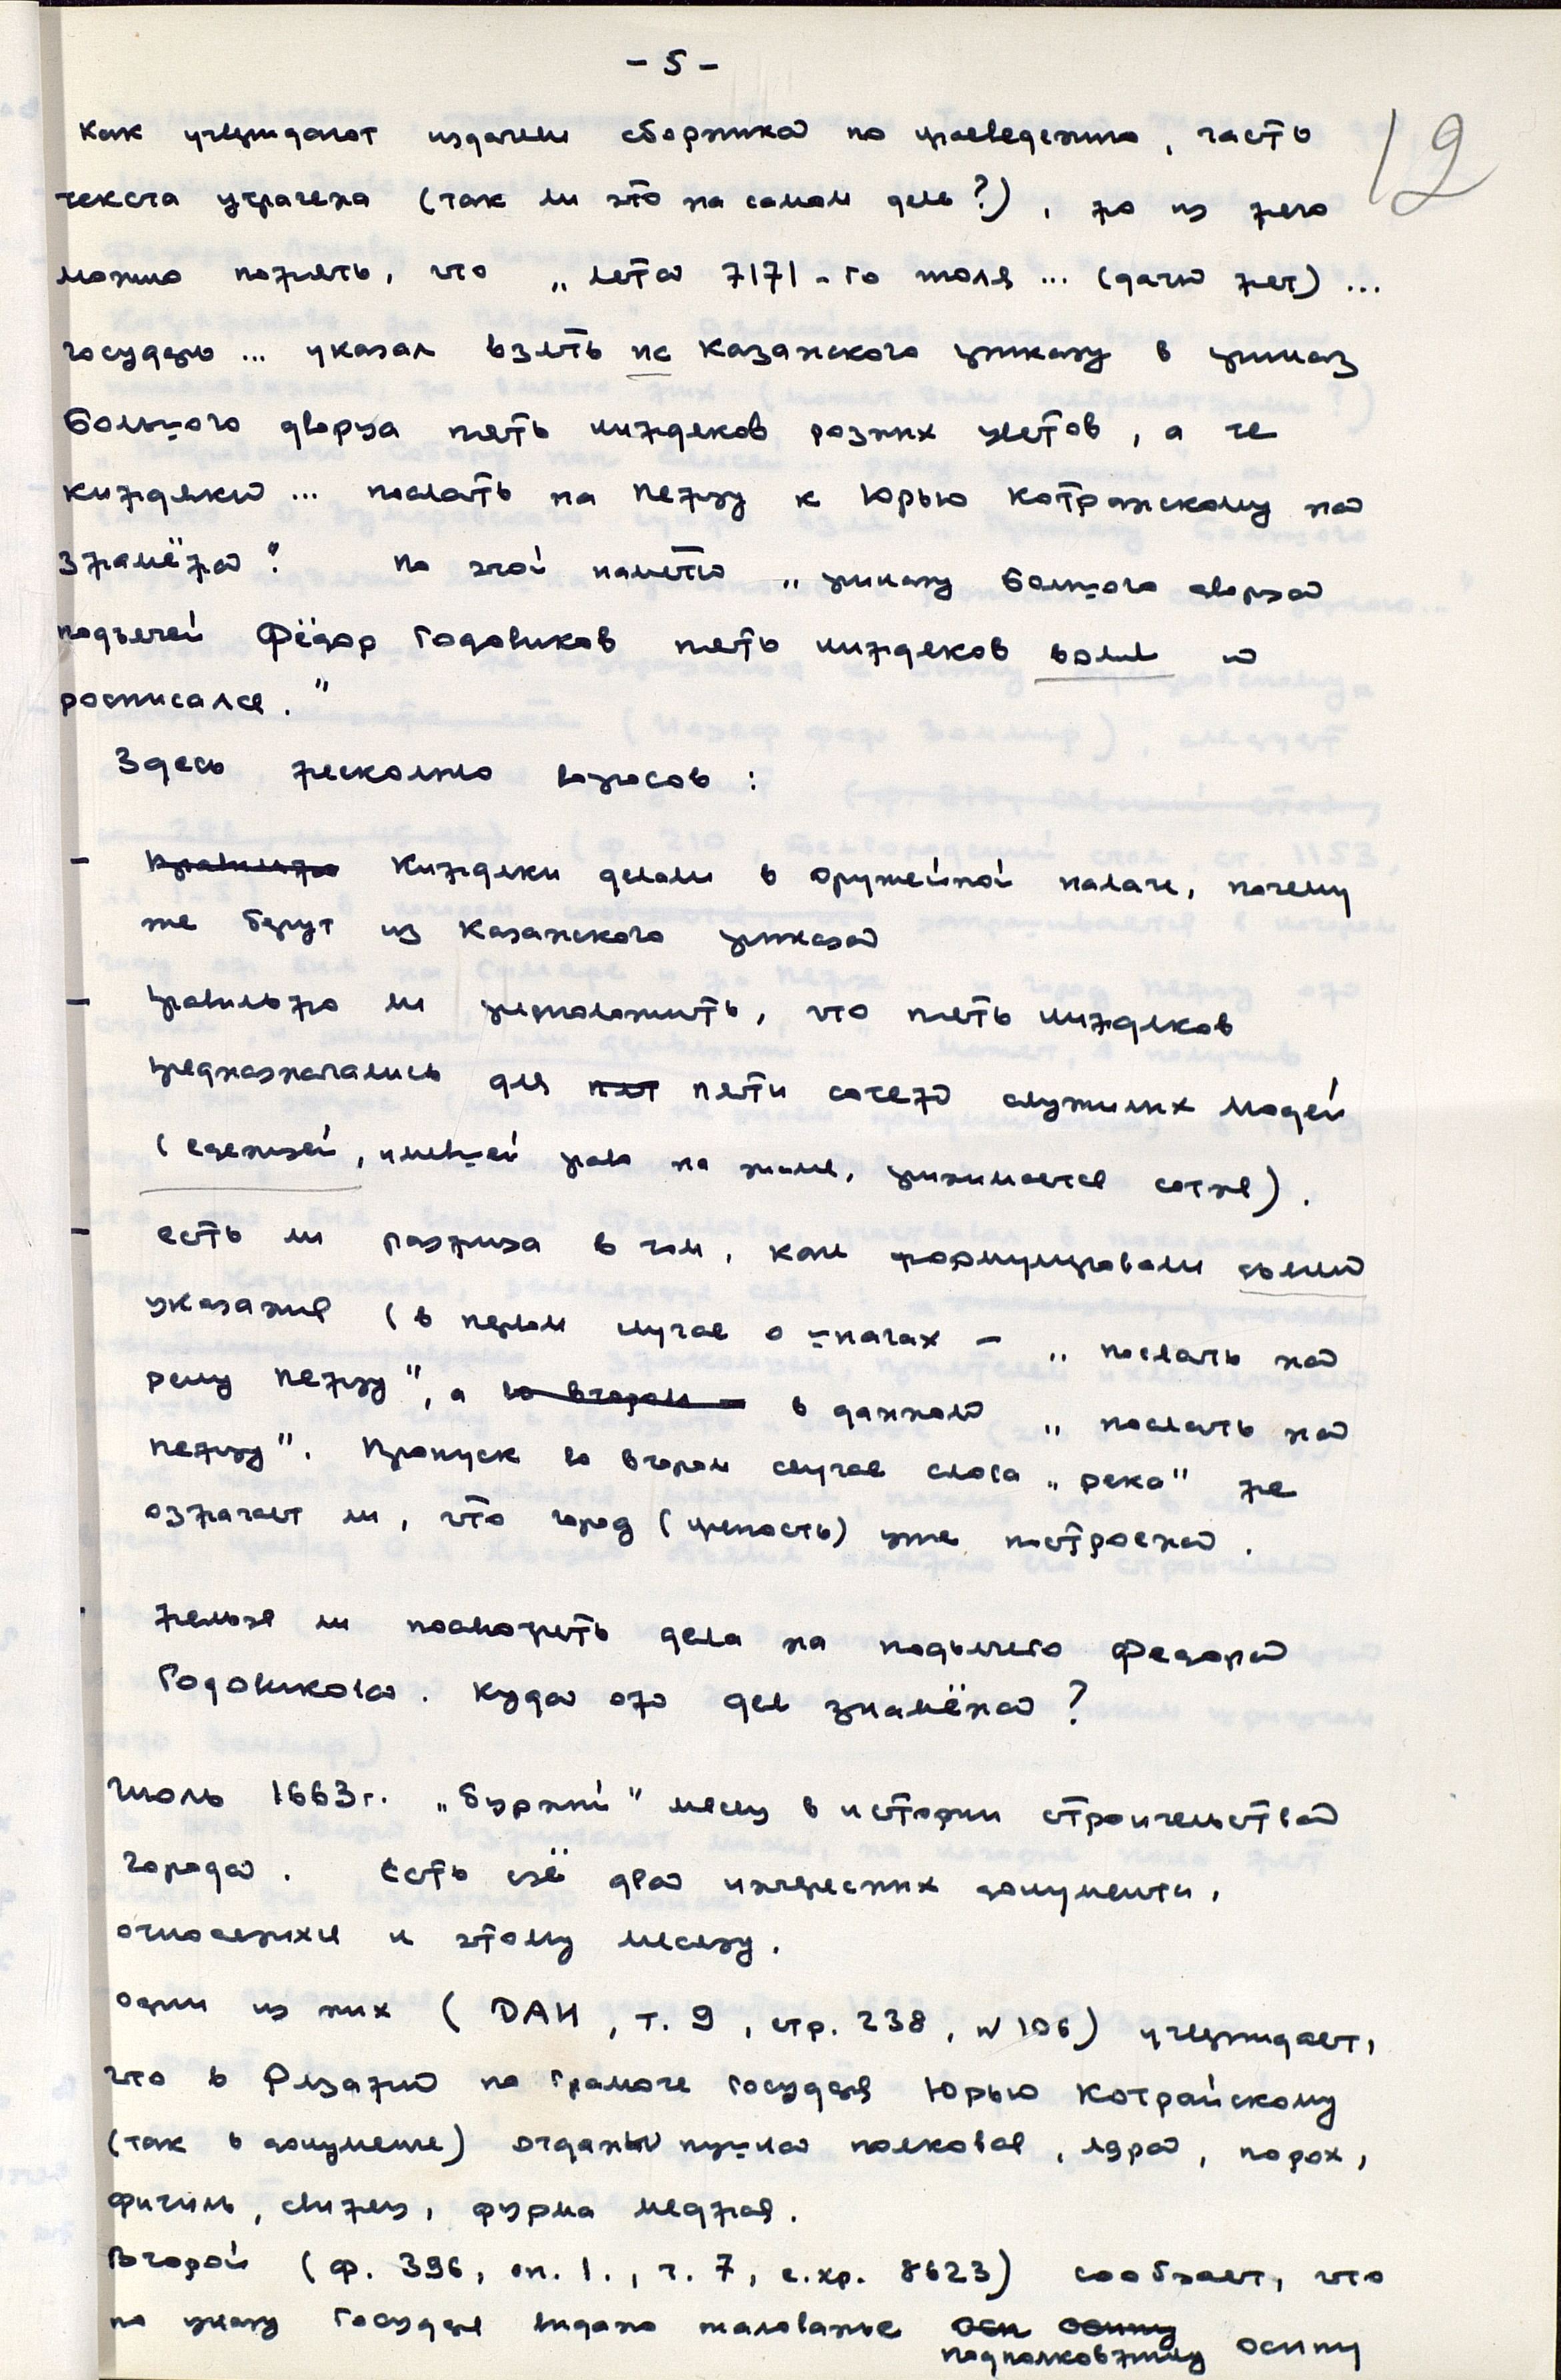 - 5 -
12
Как утверждают издатели сборника по краеведению, часть
текста утрачена (так ли это на самом деле?), но из него
можно понять, что „лета 7171-го июля ... (даты нет) ...
государь ... указал взять ис Казанского приказу в приказ
Большого дворца пять киндяков розних цветов, а те
киндяки ... послать на Пензу к Юрью Котранскому на
знамёна". По этой памяти „приказу Большого дворца
подъячей Фёдор Годовиков пять киндяков взял и
росписался."
Здесь несколько вопросов:
- Правильно Киндяки делали в Оружейной палате, почему
же берут из Казанского приказа
- Правильно ли предположить, что пять киндяков
предназначались для пят пяти сотен служилых людей
(единицей, имевшей право на знамя, принимается сотня).
- есть ли разница в том, как формулировали сылки
указания (в первом случае о шпагах - „послать на
реку Пензу", а во втором - в данном „послать на
Пензу". Пропуск во втором случае слова „река" не
означает ли, что город (крепость) уже построена.
- Нельзя ли посмотреть дела на подьячего Федора
Годовикова. Куда он дел знамёна?
Июль 1663г. „бурный" месяц в истории строительства
города. Есть ещё два интересных документа,
относящихся к этому месяцу.
один из них (ДАИ, т. 9, стр. 238, N 106) утверждает,
что в Рязани по грамоте Государя Юрью Котрайскому
(так в документе) отданы пушка полковая, ядра, порох,
фитиль, свинец, фурма медная.
Второй (ф. 396, оп. 1., ч. 7, е.хр. 8623) сообщает, что
по указу Государя выдано жалованье Оси Осипу
подполковнику Осипу